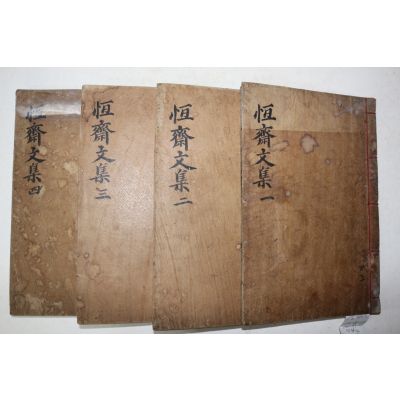 恒齋文集一
恒齋文集二
恒齋文集三
恒齋文集四